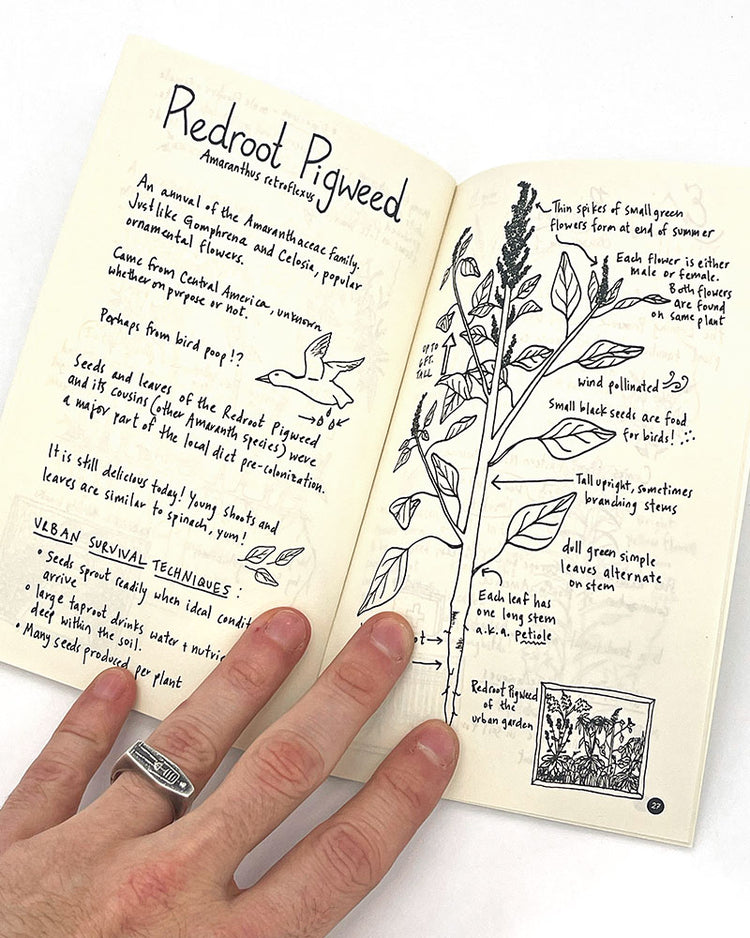 Redroot Pigweed
Amaranthus retroflexus
An annual of the Amaranthaceae family.
Just like Gomphrena and Celosia, popular
ornamental flowers.
Came from Central America, unknown
whether on purpose or not.
Perhaps from bird poop!?
Seeds and leaves of the Redroot Pigweed
and its cousins (other Amaranth species) were
a major part of the local diet pre-colonization.
It is still delicious today! Young shoots and
leaves are similar to spinach, yum!
URBAN SURVIVAL TECHNIQUES:
• Seeds sprout readily when ideal
arrive
• large taproot drinks water +
deep within the soil.
• Many seeds produced per plant
Thin spikes of small green
flowers form at end of summer
Each flower is either
male or female.
Both flowers
are found
on same plant
UP TO
6 FT.
TALL
wind pollinated
Small black seeds are food
for birds!
Tall upright, sometimes
branching stems
dull green simple
leaves alternate
on stem
Each leaf has
one long stem
a.k.a. petiole
Redroot Pigweed
of the
urban garden
27